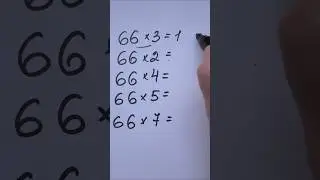 66 × 3 = 1
66 × 2 =
66 × 4 =
66 × 5 =
66 × 7 =